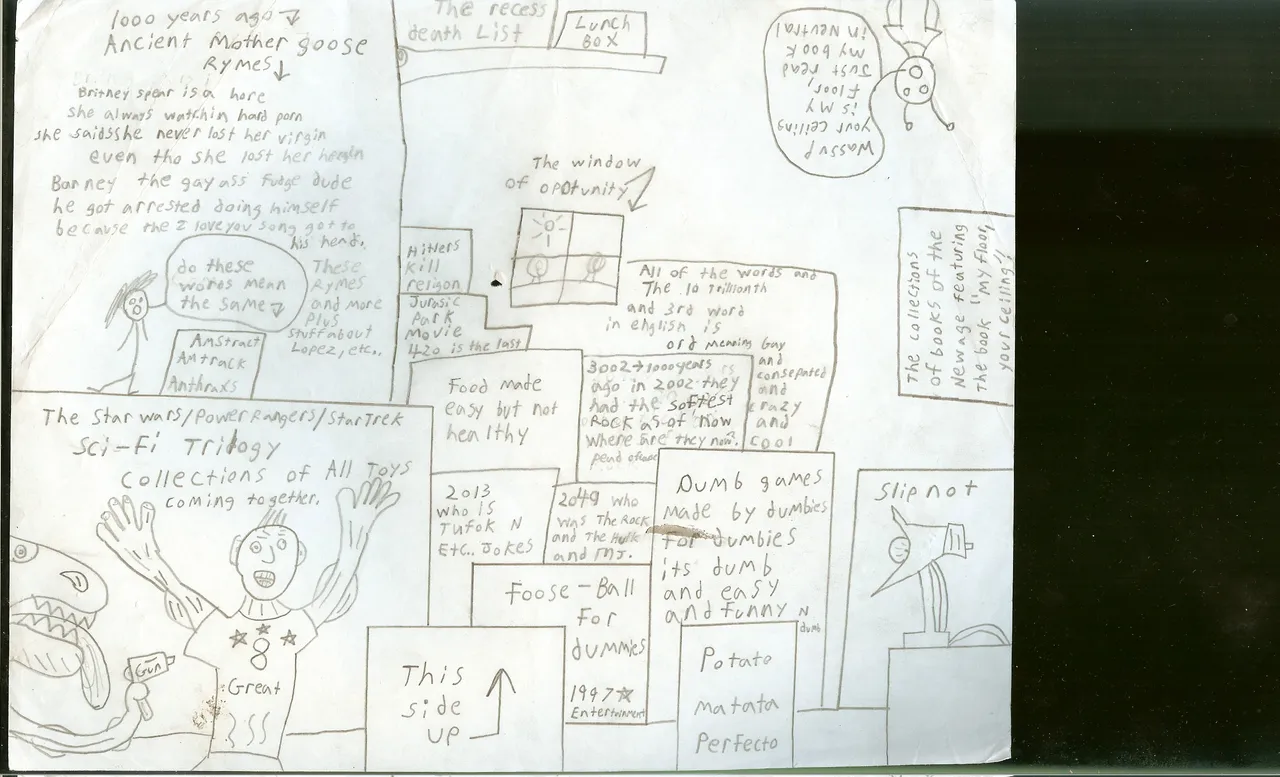 1000 years ago
Ancient Mother goose
Rymes
Britney spear is a hore
she always watchin hard porn
she saidsshe never lost her virgin
even tho she lost her
Barney the gay ass fudge dude
he got arrested doing himself
because the I love you song got to
his head.
do these
wores mean
the same
These
Rymes
and more
Plus
stuff about
Lopez, etc..
Amstract
Amtrack
Anthraxs
The recess
death List
Lunch
Box
Wassup
your ceiling
is my
floor,
Just read
my book
in Neutral
The window
of opotunity
Hitlers
kill
religon
Jurasic
Park
Movie
420 is the last
All of the words and
The 10 Trillionth
and 3rd word
in english is
ord meaning Gay
and
consepated
and
crazy
and
cool
The collections
of books of the
New age featuring
The book "my floor,
your ceiling!!
Food made
easy but not
healthy
3002→1000years is
ago in 2002 they
had the softest
Rock as of now
where are they now?
The Star wars/Power Rangers/Star Trek
Sci-Fi Trilogy
Collections of All Toys
coming together.
Gun
8
Great
2013
who is
Tufok N
Etc.. Jokes
2049 who
was The Rock
and The Hulk
and MJ.
Dumb games
made by dumbies
for dumbies
its dumb
and easy
and funny N
dumb
Slipnot
Foose-Ball
For
dummies
1997
Entertainment
This
side
up
Potato
matata
Perfecto